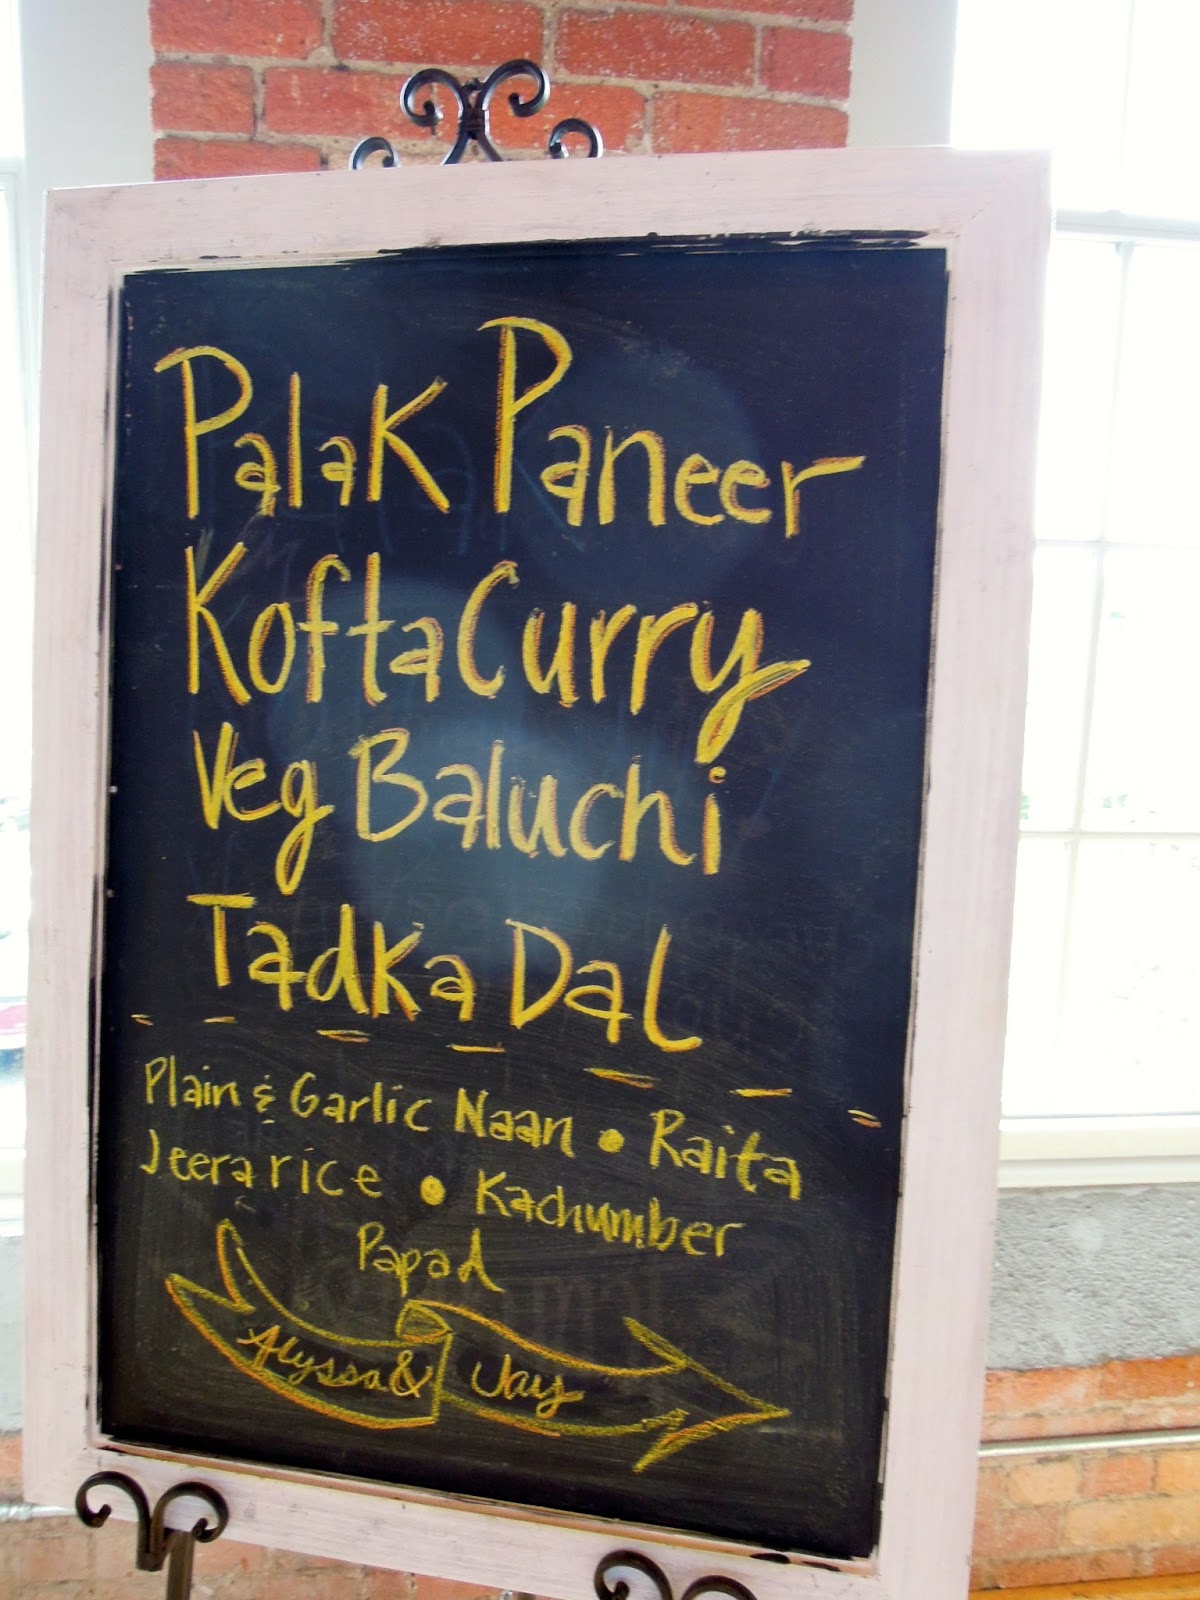 Palak Paneer
Kofta Curry
Veg Baluchi
Tadka Dal
Plain & Garlic Naan • Raita
Jeera rice • Kachumber
Papad
Alyssa & Jay